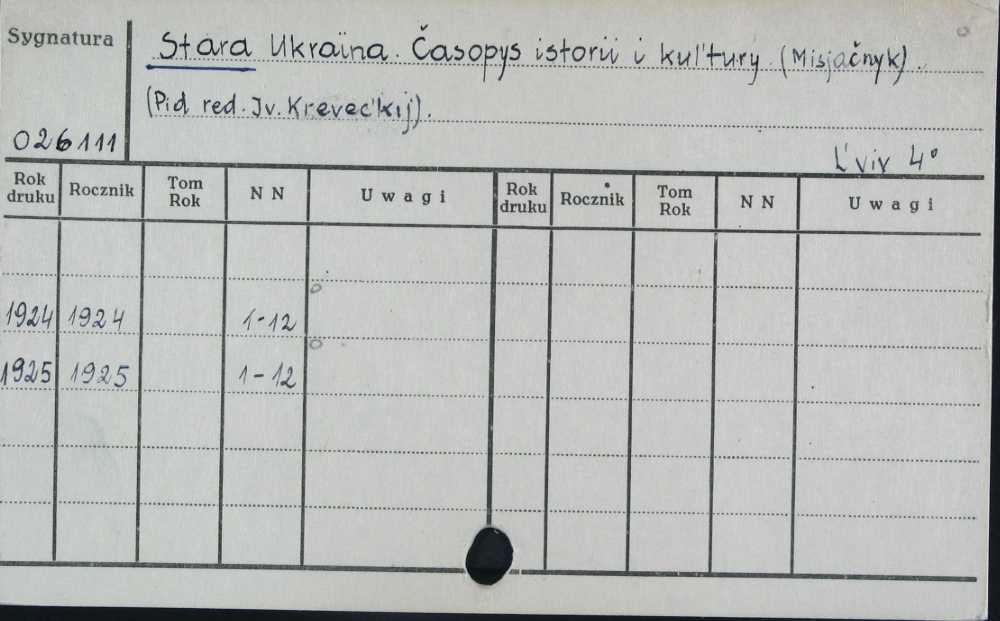 Sygnatura
Stara Ukraïna. Časopys istoriï i kul'tury. (Misjačnyk).
(Pid red. Iv. Krevec'kij).
026111
L'viv 4°
Rok druku Rocznik Tom Rok N N Uwagi Rok druku Rocznik Tom Rok N N Uwagi
1924 1924 1-12
1925 1925 1-12